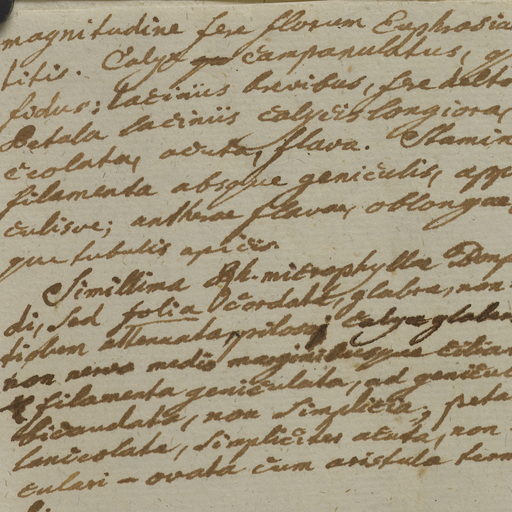 magnitudine fere florum Euphrasia
titis. Calyx campanulatus,
fidus; laciniis brevibus, fere
Petala laciniis calycis longiora,
ceolata, acuta, flava. Stamin
filamenta absque geniculis, app
culisve; antherae flavae, oblongae,
que tubulis apice
Simillima Rh. microphyllae Bonp
di, sed folia cordata, glabra, non
tiorem attenuata, pilosa; calyx glaber
non nervo medio marginibusque
filamenta geniculata, ad genicul
bicaudata, non simplicia; peta
lanceolata, simpliciter acuta, non
culari - ovata cum aristula term